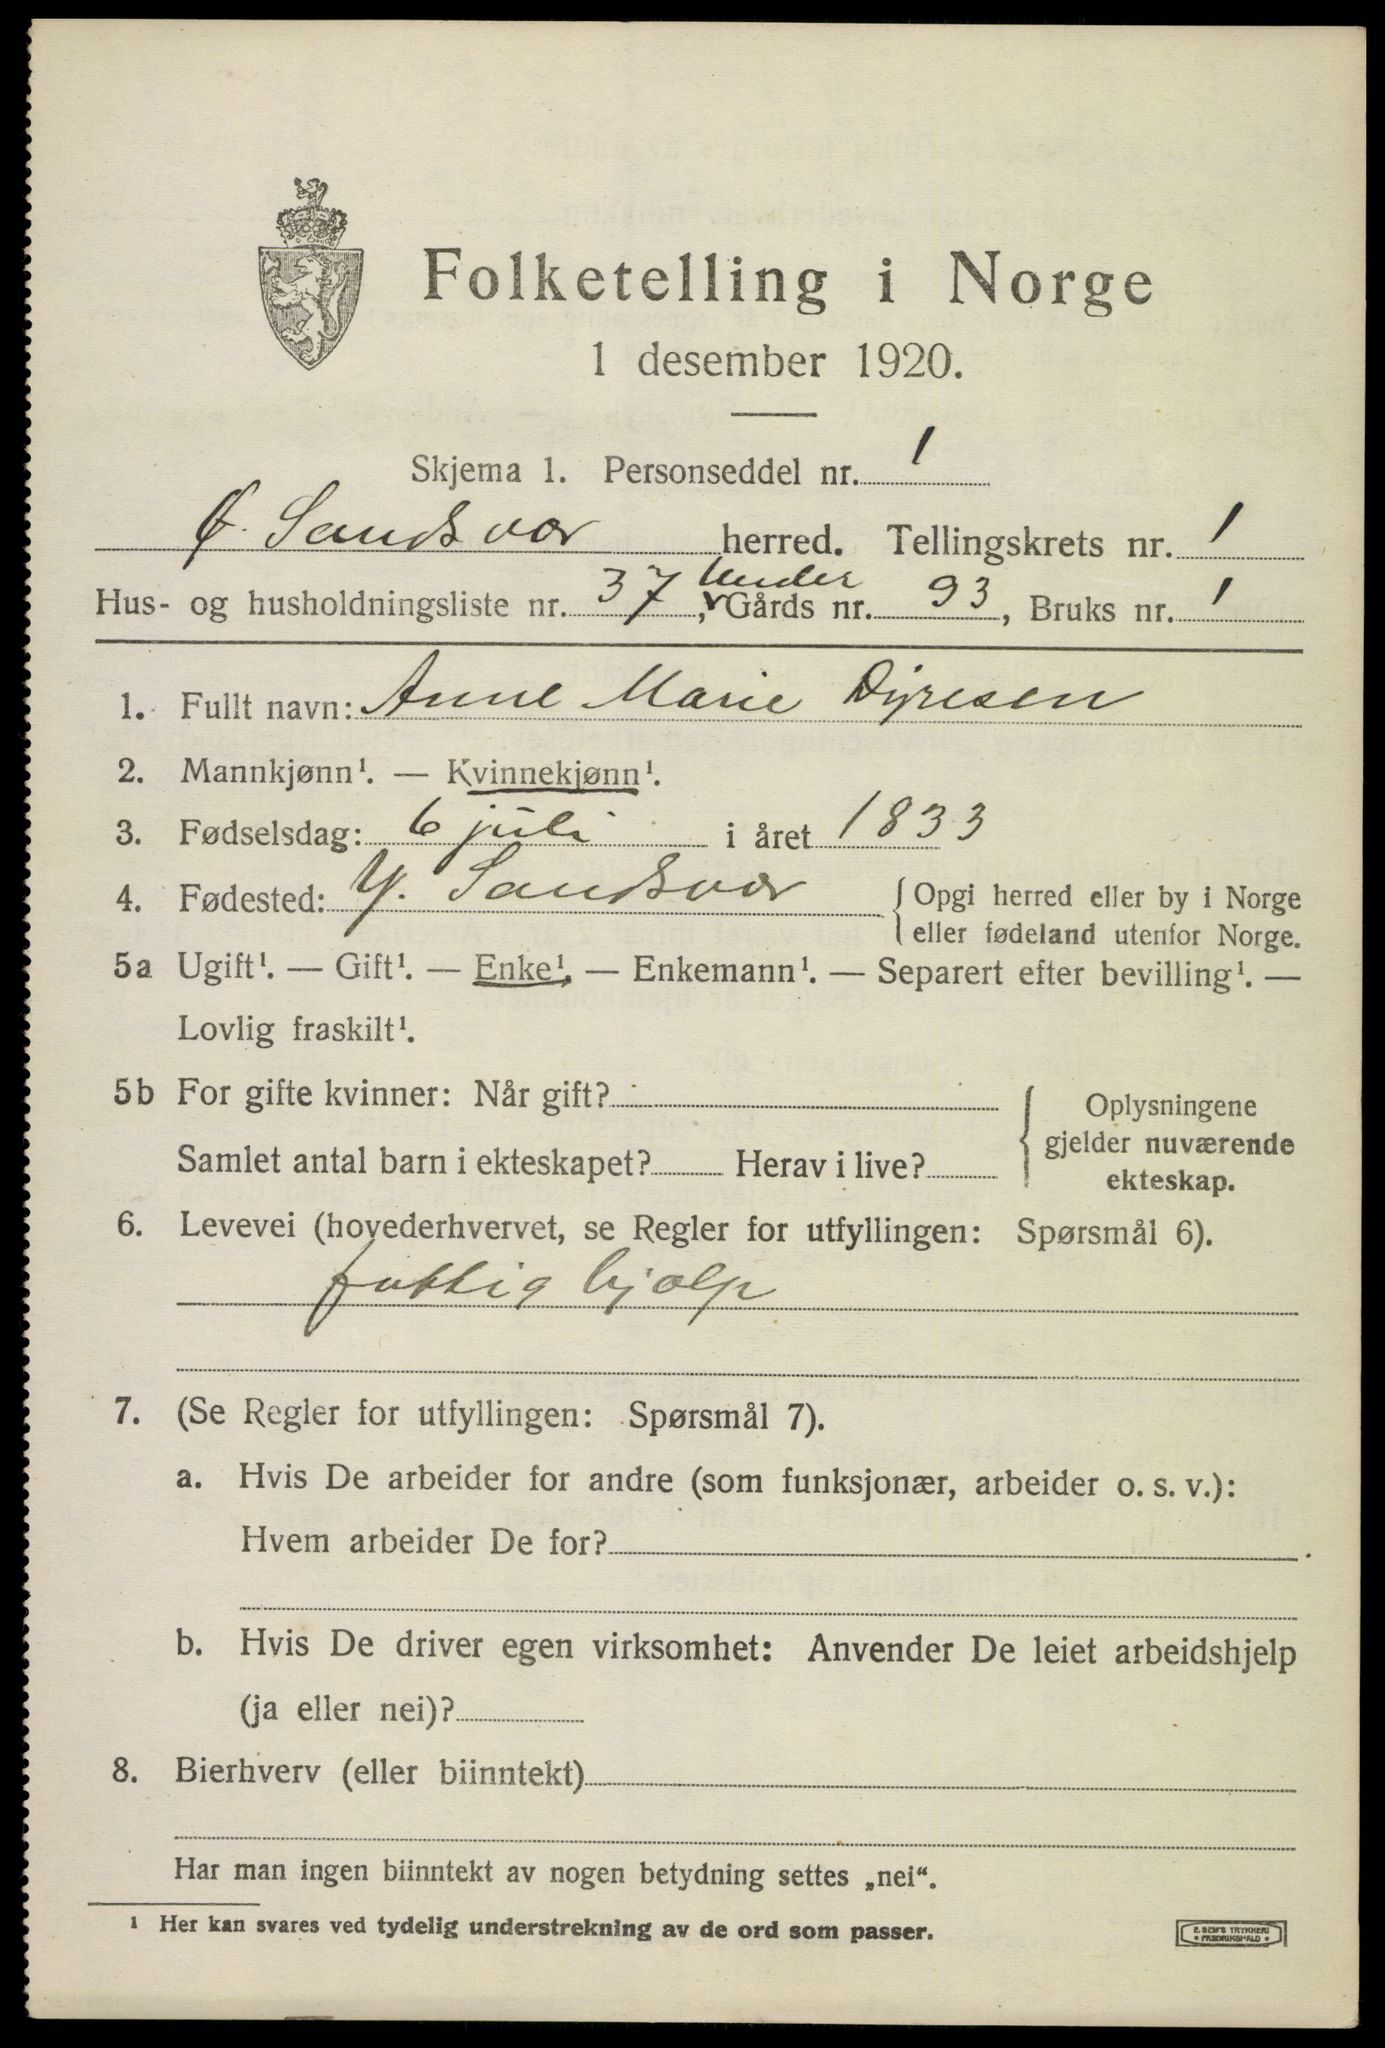 Folketelling i Norge
1 desember 1920.
Skjema 1. Personseddel nr. 1
Ø. Sandsvær herred. Tellingskrets nr. 1
Hus- og husholdningsliste nr. 37, Under Gårds nr. 93, Bruks nr. 1
1. Fullt navn: Anne Marie Dyresen
2. Mannkjønn¹. — Kvinnekjønn¹.
3. Fødselsdag: 6 juli i året 1833
4. Fødested: Y. Sandsvær { Opgi herred eller by i Norge
eller fødeland utenfor Norge.
5a Ugift¹. — Gift¹. — Enke¹. — Enkemann¹. — Separert efter bevilling¹. —
Lovlig fraskilt¹.
5b For gifte kvinner: Når gift? { Oplysningene
gjelder nuværende
Samlet antal barn i ekteskapet? Herav i live?
ekteskap.
6. Levevei (hovederhvervet, se Regler for utfyllingen: Spørsmål 6).
fattig hjælp
7. (Se Regler for utfyllingen: Spørsmål 7).
a. Hvis De arbeider for andre (som funksjonær, arbeider o. s. v.):
Hvem arbeider De for?
b. Hvis De driver egen virksomhet: Anvender De leiet arbeidshjelp
(ja eller nei)?
8. Bierhverv (eller biinntekt)
Har man ingen biinntekt av nogen betydning settes „nei“.
¹ Her kan svares ved tydelig understrekning av de ord som passer.
E. SEM'S TRYKKERI
• FREDRIKSHALD •